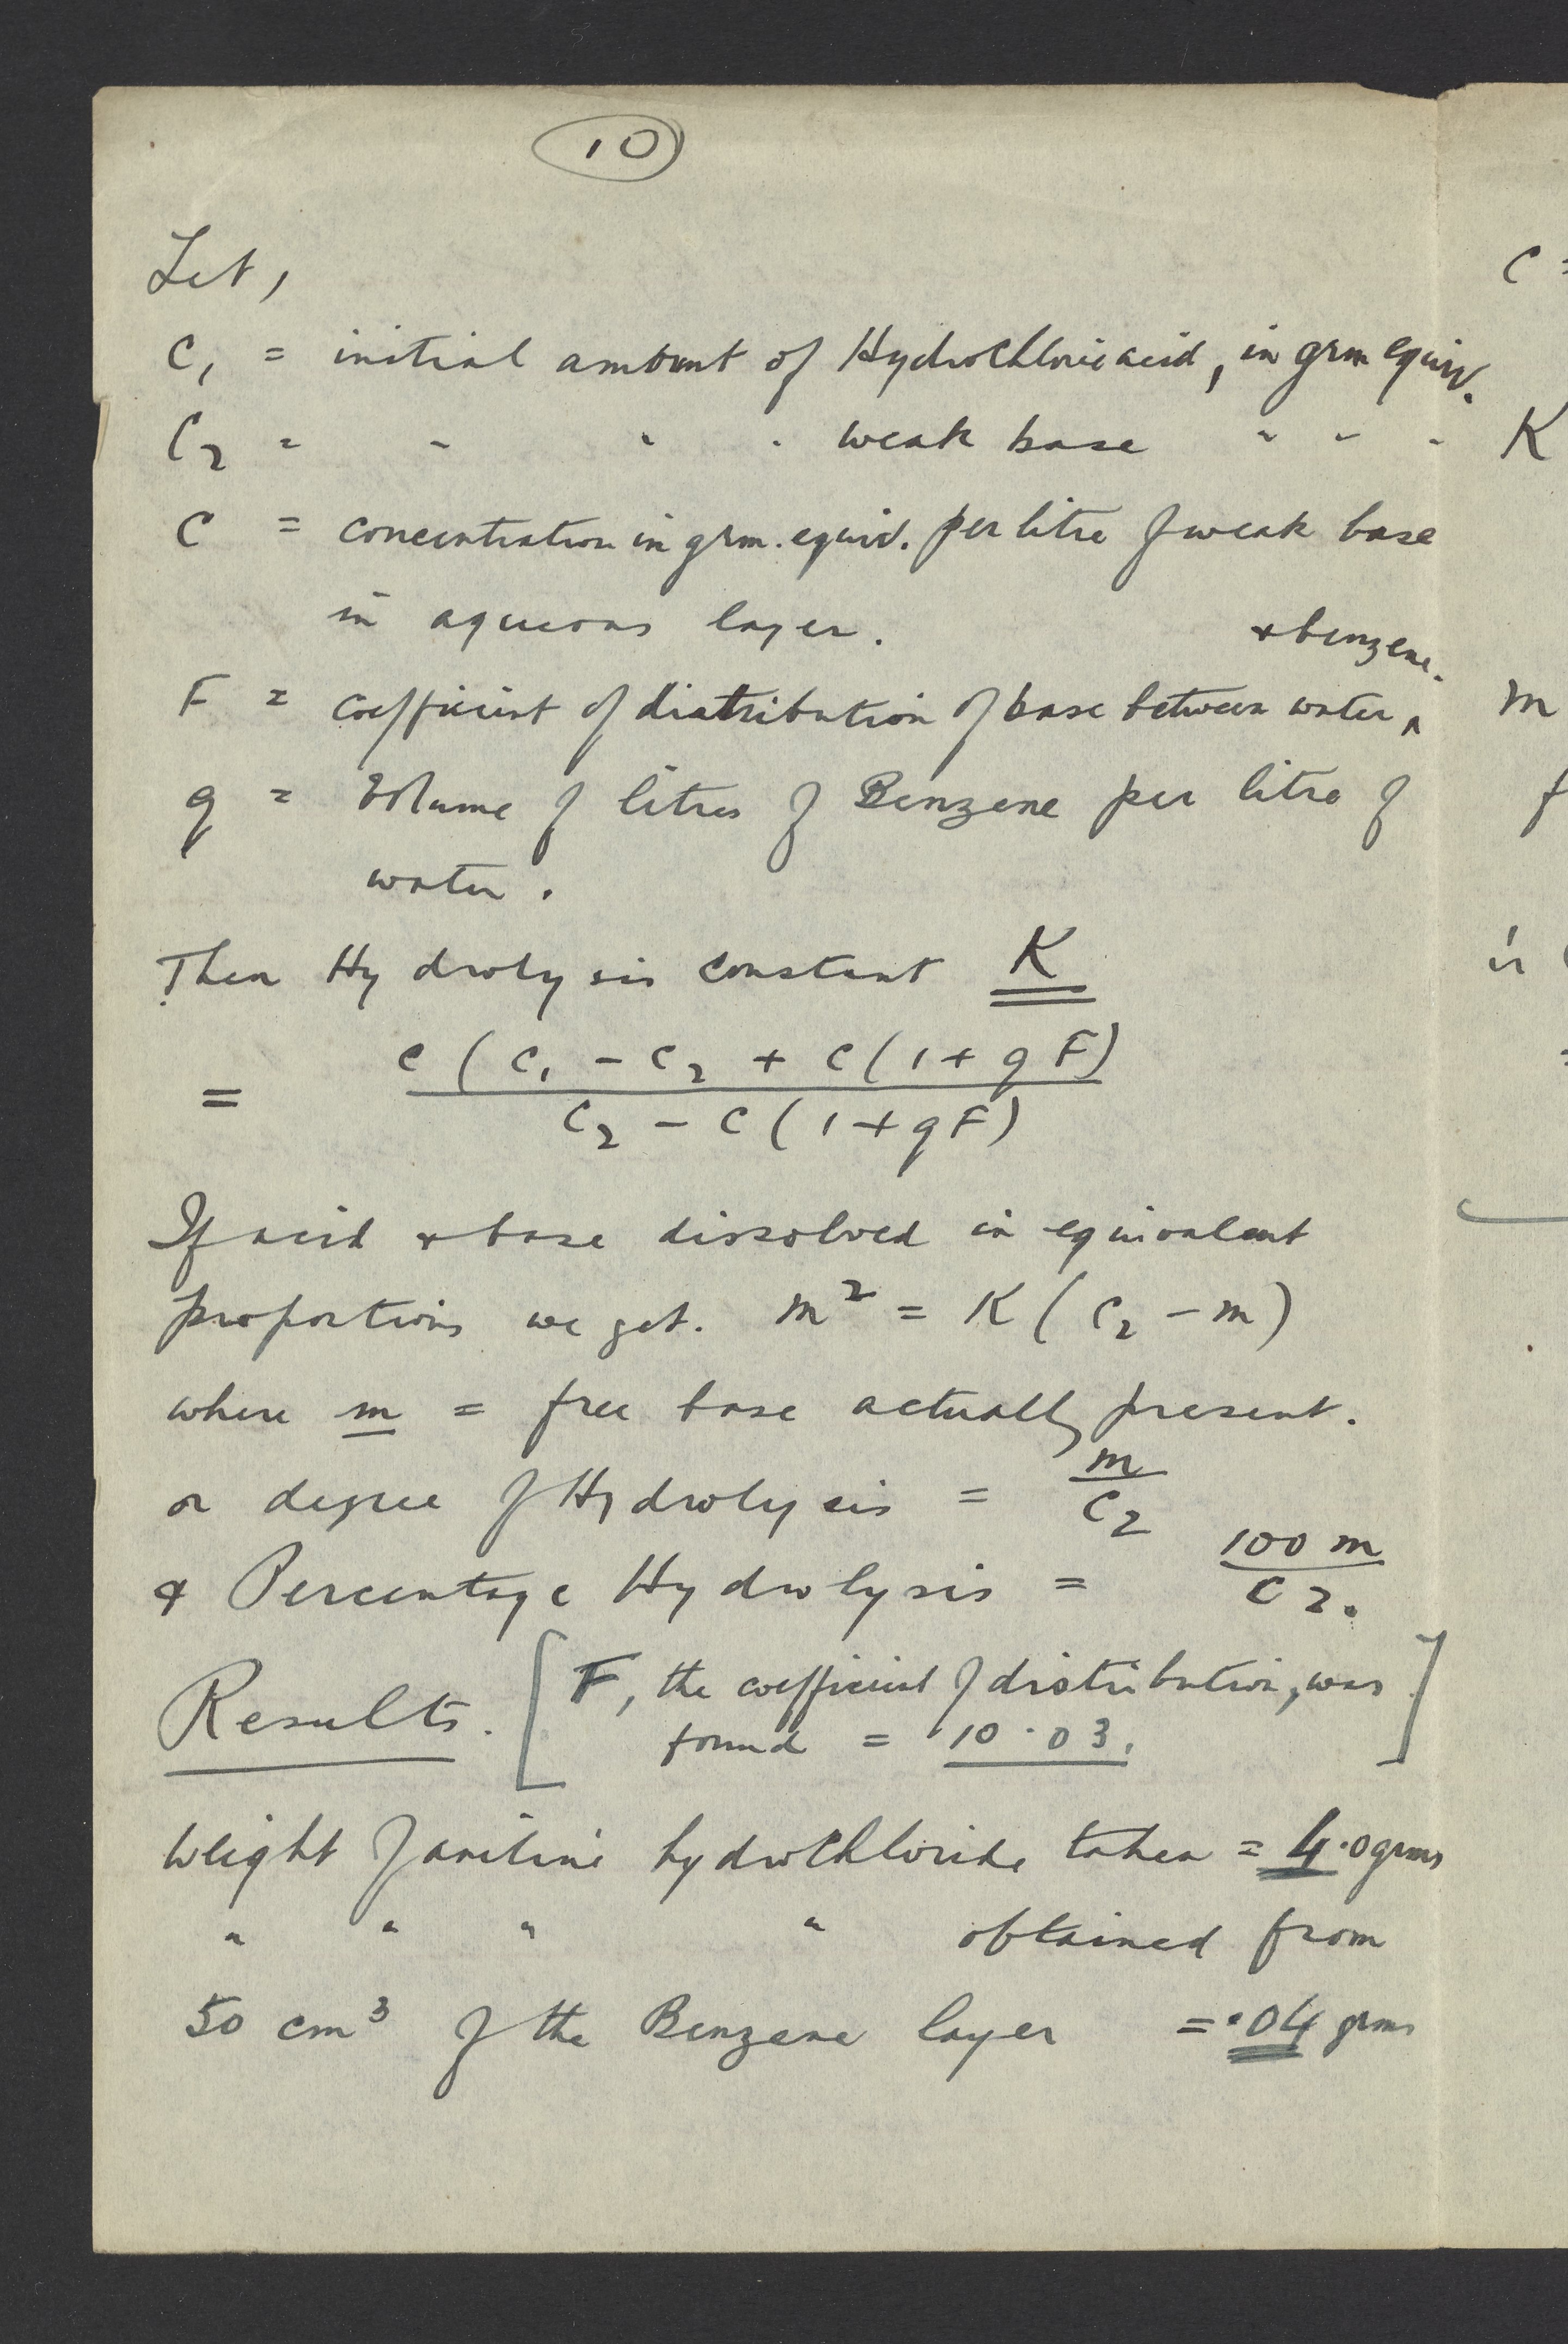 10
Let,
C₁ = initial amount of Hydrochloric acid, in grm equiv.
C₂ = " " " weak base " " "
C = concentration in grm. equiv. per litre of weak base
in aqueous layer.
F = coefficient of distribution of base between water ^ & benzene.
q = Volume of litres of Benzene per litre of
water.
Then Hydrolysis constant K
= C ( C₁ - C₂ + C ( 1 + q F )
C₂ - C ( 1 + q F )
If acid & base dissolved in equivalent
proportions we get. m² = K ( C₂ - m )
where m = free base actually present.
or degree of Hydrolysis = m / C₂
& Percentage Hydrolysis = 100 m / C₂.
Results. [ F, the coefficient of distribution, was
found = 10·03. ]
Weight of aniline hydrochloride taken = 4·0 grms
" " " " obtained from
50 cm³ of the Benzene layer = ·04 grms
C =
K
m
f
is